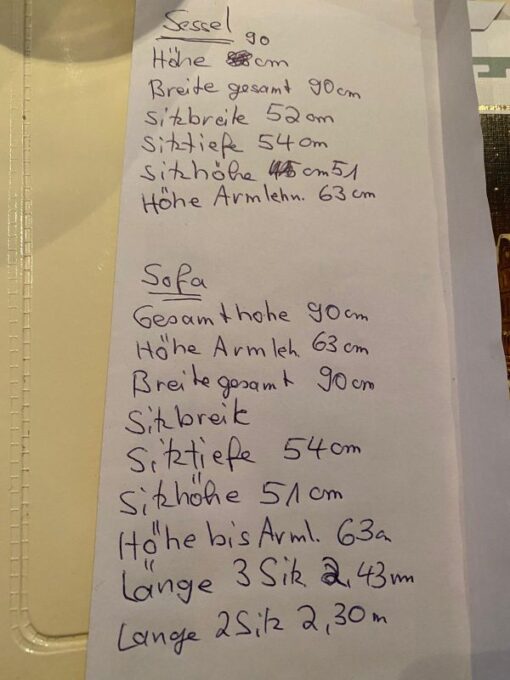 Sessel
Höhe 90 cm
Breite gesamt 90cm
Sitzbreite 52 cm
Sitztiefe 54 cm
Sitzhöhe cm 51
Höhe Armlehn. 63 cm
Sofa
Gesamthohe 90cm
Höhe Armleh. 63 cm
Breite gesamt 90cm
Sitzbreite
Sitztiefe 54 cm
Sitzhöhe 51 cm
Höhe bis Arml. 63
Länge 3 Sitz 2,43
Lange 2 Sitz 2,30 m